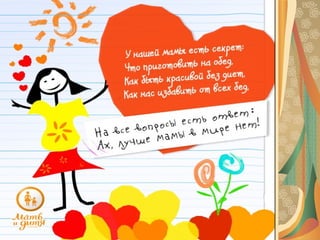 У нашей мамы есть секрет:
Что приготовить на обед,
Как быть красивой без диет,
Как нас избавить от всех бед.
На все вопросы есть ответ:
Ах, лучше мамы в мире нет!
Мать
и дитя